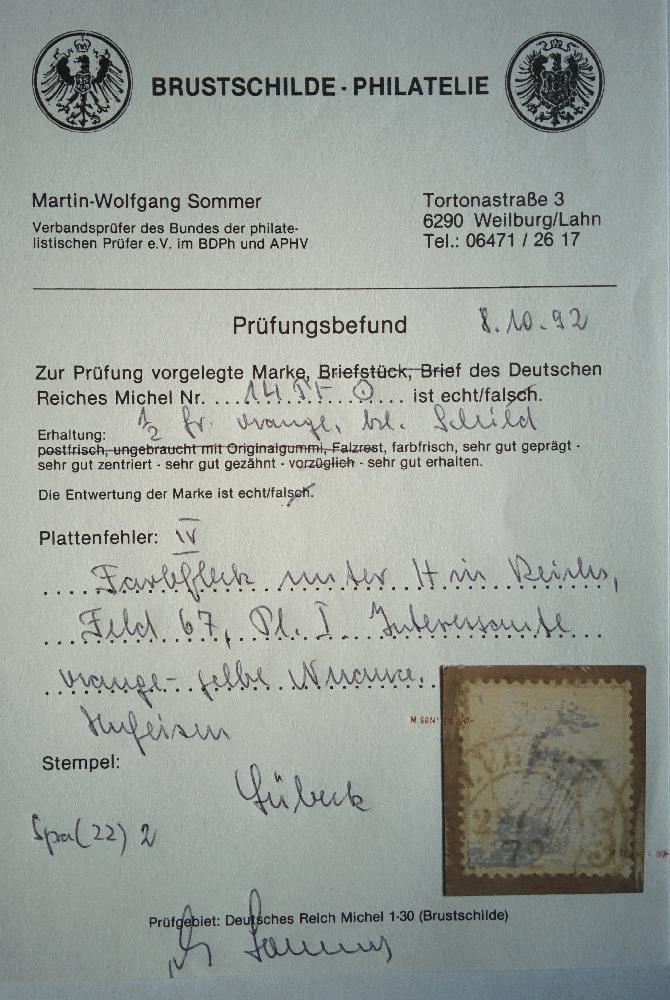 BRUSTSCHILDE - PHILATELIE
Martin-Wolfgang Sommer
Verbandsprüfer des Bundes der philate-
listischen Prüfer e.V. im BDPh und APHV
Tortonastraße 3
6290 Weilburg/Lahn
Tel.: 06471 / 26 17
Prüfungsbefund 8.10.92
Zur Prüfung vorgelegte Marke, Briefstück, Brief des Deutschen
Reiches Michel Nr. ... 14 PF ... ist echt/falsch.
1/2 Gr. orange, kl. Schild
Erhaltung:
postfrisch, ungebraucht mit Originalgummi, Falzrest, farbfrisch, sehr gut geprägt -
sehr gut zentriert - sehr gut gezähnt - vorzüglich - sehr gut erhalten.
Die Entwertung der Marke ist echt/falsch.
Plattenfehler: IV
Farbfleck unter H in Reichs,
Feld 67, Pl. I. Interessante
orange-gelbe Nuance.
Hufeisen
Stempel:
Lübeck
Spa(22) 2
Prüfgebiet: Deutsches Reich Michel 1-30 (Brustschilde)